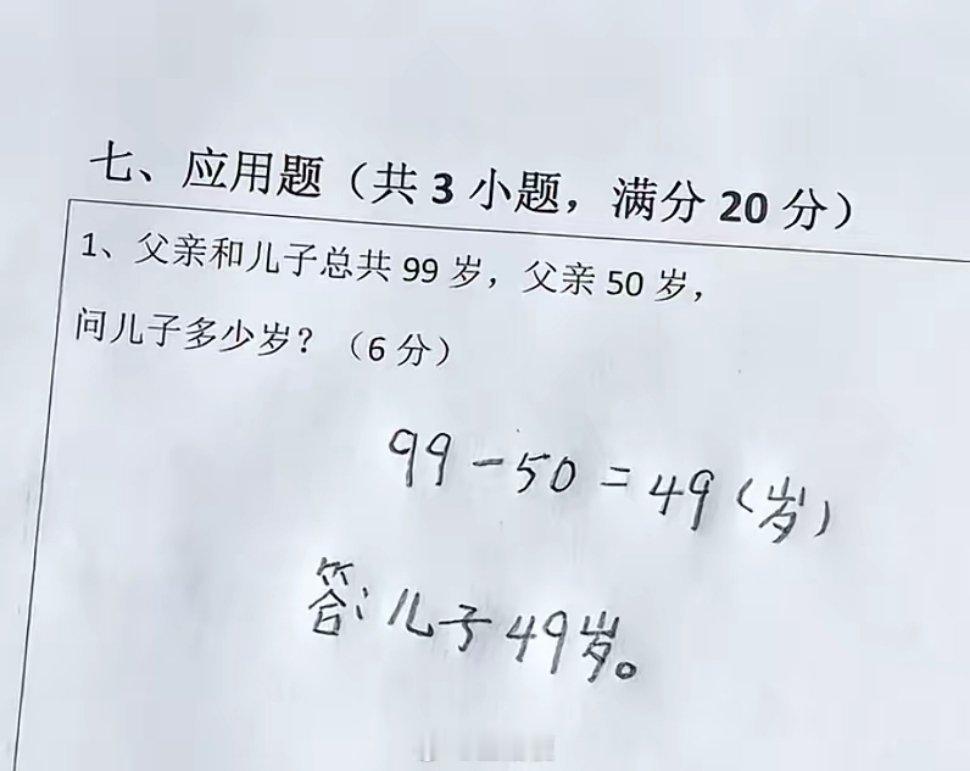 七、应用题（共 3 小题，满分 20 分）
1、父亲和儿子总共 99 岁，父亲 50 岁，
问儿子多少岁？（6 分）
99-50=49(岁)
答:儿子49岁。